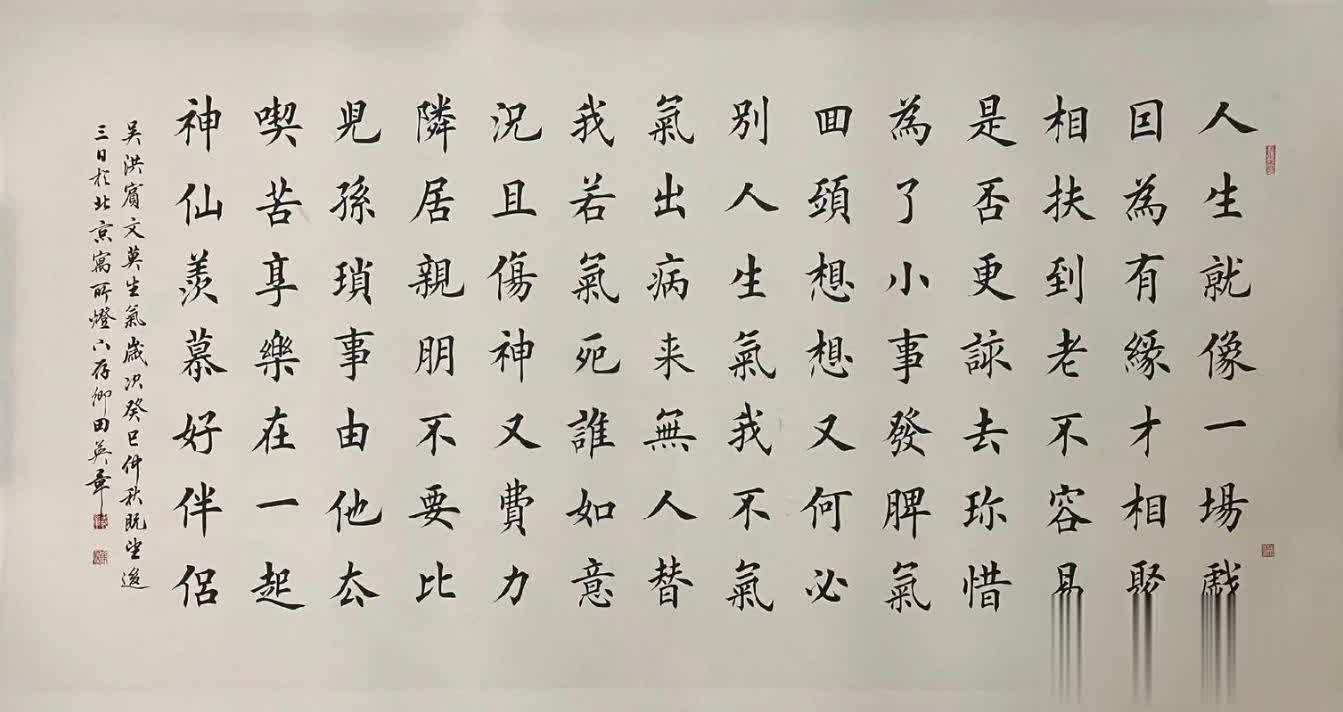 人生就像一場戲
囙為有緣才相聚
相扶到老不容易
是否更該去珎惜
為了小事發脾氣
囬頭想想又何必
别人生氣我不氣
氣出病来無人替
我若氣死誰如意
況且傷神又費力
隣居親朋不要比
兒孫瑣事由他去
喫苦享樂在一起
神仙羨慕好伴侶
吴洪賓文莫生氣歲次癸巳仲秋既望後
三日於北京寓所燈下存卿田英章